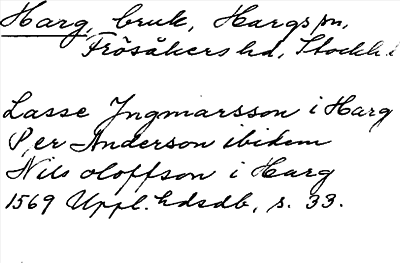 Harg, bruk, Hargs sn,
Frösåkers hd, Stockh. l
Lasse Jngmarsson i Harg
P,er Anderson ibidem
Nils oloffson i Harg
1569 Uppl. hdsdb, s. 33.